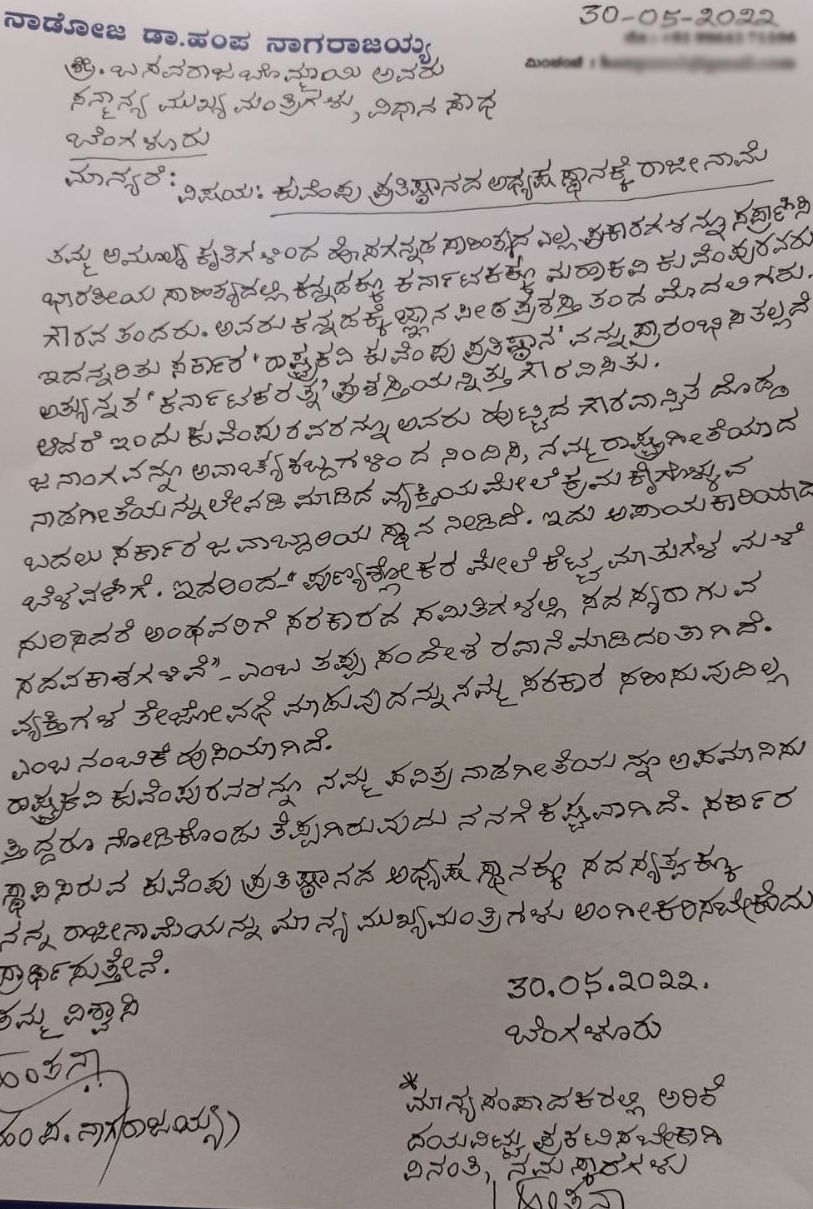 ನಾಡೋಜ ಡಾ.ಹಂಪ ನಾಗರಾಜಯ್ಯ
30-05-೨೦೨೨
ಮಿಂಚಂಚೆ :
ಶ್ರೀ. ಬಸವರಾಜ ಬೊಮ್ಮಾಯಿ ಅವರು
ಸನ್ಮಾನ್ಯ ಮುಖ್ಯ ಮಂತ್ರಿಗಳು, ವಿಧಾನ ಸೌಧ
ಬೆಂಗಳೂರು
ಮಾನ್ಯರೆ: ವಿಷಯ: ಕುವೆಂಪು ಪ್ರತಿಷ್ಠಾನದ ಅಧ್ಯಕ್ಷ ಸ್ಥಾನಕ್ಕೆ ರಾಜೀನಾಮೆ
ತಮ್ಮ ಅಮೂಲ್ಯ ಕೃತಿಗಳಿಂದ ಹೊಸಗನ್ನಡ ಸಾಹಿತ್ಯದ ಎಲ್ಲ ಪ್ರಕಾರಗಳನ್ನು
ಭಾರತೀಯ ಸಾಹಿತ್ಯದಲ್ಲಿ ಕನ್ನಡಕ್ಕೂ ಕರ್ನಾಟಕಕ್ಕೂ ಮಹಾಕವಿ ಕುವೆಂಪುರವರು
ಗೌರವ ತಂದರು. ಅವರು ಕನ್ನಡಕ್ಕೆ ಜ್ಞಾನ ಪೀಠ ಪ್ರಶಸ್ತಿ ತಂದ ಮೊದಲಿಗರು.
ಇದನ್ನರಿತು ಸರ್ಕಾರ 'ರಾಷ್ಟ್ರಕವಿ ಕುವೆಂಪು ಪ್ರತಿಷ್ಠಾನ' ವನ್ನು ಪ್ರಾರಂಭಿಸಿತಲ್ಲದೆ
ಅತ್ಯುನ್ನತ 'ಕರ್ನಾಟಕರತ್ನ' ಪ್ರಶಸ್ತಿಯನ್ನಿತ್ತು ಗೌರವಿಸಿತು.
ಆದರೆ ಇಂದು ಕುವೆಂಪುರವರನ್ನೂ ಅವರು ಹುಟ್ಟಿದ ಗೌರವಾನ್ವಿತ ದೊಡ್ಡ
ಜನಾಂಗವನ್ನೂ ಅವಾಚ್ಯ ಶಬ್ದಗಳಿಂದ ನಿಂದಿಸಿ, ನಮ್ಮ ರಾಷ್ಟ್ರಗೀತೆಯಾದ
ನಾಡಗೀತೆಯನ್ನು ಲೇವಡಿ ಮಾಡಿದ ವ್ಯಕ್ತಿಯ ಮೇಲೆ ಕ್ರಮ ಕೈಗೊಳ್ಳುವ
ಬದಲು ಸರ್ಕಾರ ಜವಾಬ್ದಾರಿಯ ಸ್ಥಾನ ನೀಡಿದೆ. ಇದು ಅಪಾಯಕಾರಿಯಾದ
ಬೆಳವಣಿಗೆ. ಇದರಿಂದ-" ಪುಣ್ಯಶ್ಲೋಕರ ಮೇಲೆ ಕೆಟ್ಟ ಮಾತುಗಳ ಮಳೆ
ಸುರಿಸಿದರೆ ಅಂಥವರಿಗೆ ಸರಕಾರದ ಸಮಿತಿಗಳಲ್ಲಿ ಸದಸ್ಯರಾಗುವ
ಸದವಕಾಶಗಳಿವೆ"- ಎಂಬ ತಪ್ಪು ಸಂದೇಶ ರವಾನೆ ಮಾಡಿದಂತಾಗಿದೆ.
ವ್ಯಕ್ತಿಗಳ ತೇಜೋವಧೆ ಮಾಡುವುದನ್ನು ನಮ್ಮ ಸರಕಾರ ಸಹಿಸುವುದಿಲ್ಲ
ಎಂಬ ನಂಬಿಕೆ ಹುಸಿಯಾಗಿದೆ.
ರಾಷ್ಟ್ರಕವಿ ಕುವೆಂಪುರವರನ್ನೂ ನಮ್ಮ ಪವಿತ್ರ ನಾಡಗೀತೆಯನ್ನೂ ಅಪಮಾನಿಸು
ತ್ತಿದ್ದರೂ ನೋಡಿಕೊಂಡು ತೆಪ್ಪಗಿರುವುದು ನನಗೆ ಕಷ್ಟವಾಗಿದೆ. ಸರ್ಕಾರ
ಸ್ಥಾಪಿಸಿರುವ ಕುವೆಂಪು ಪ್ರತಿಷ್ಠಾನದ ಅಧ್ಯಕ್ಷ ಸ್ಥಾನಕ್ಕೂ ಸದಸ್ಯತ್ವಕ್ಕೂ
ನನ್ನ ರಾಜೀನಾಮೆಯನ್ನು ಮಾನ್ಯ ಮುಖ್ಯಮಂತ್ರಿಗಳು ಅಂಗೀಕರಿಸಬೇಕೆಂದು
ಪ್ರಾರ್ಥಿಸುತ್ತೇನೆ.
30.05.೨೦೨೨.
ತಮ್ಮ ವಿಶ್ವಾಸಿ
ಬೆಂಗಳೂರು
ಹಂಪನಾ
ಹಂಪ. ನಾಗರಾಜಯ್ಯ)
*ಮಾನ್ಯ ಸಂಪಾದಕರಲ್ಲಿ ಅರಿಕೆ
ದಯವಿಟ್ಟು ಪ್ರಕಟಿಸಬೇಕಾಗಿ
ವಿನಂತಿ, ನಮಸ್ಕಾರಗಳು
ಹಂಪನಾ